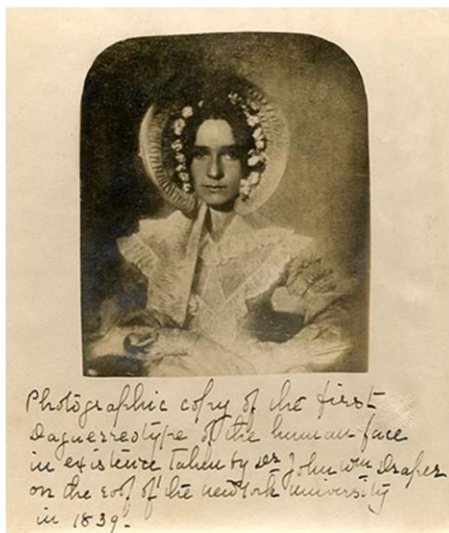 Photographic copy of the first
Daguerreotype of the human face
in existence taken by Dr John Wm Draper
on the roof of the new York University
in 1839.